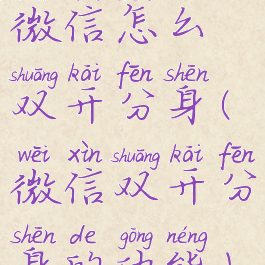 微信怎么
shuāng kāi fēn shēn
双开分身(
wēi xìn shuāng kāi fēn
微信双开分
shēn de gōng néng
身的功能)